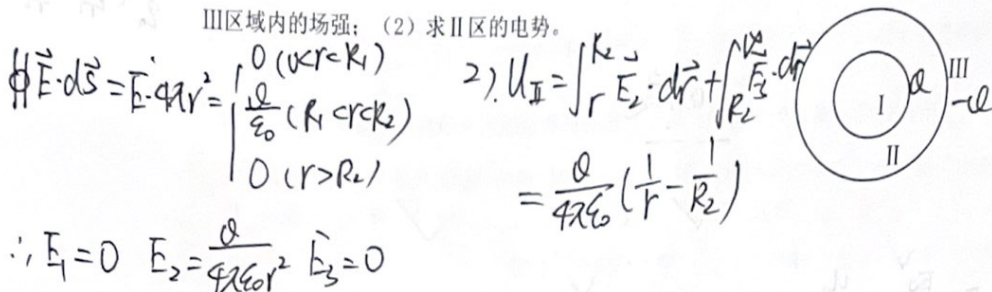 III区域内的场强；（2）求II区的电势。
∯E⃗·dS⃗=E·4πr²={0 (0<r<R₁)
Q/ε₀ (R₁<r<R₂)
0 (r>R₂)
∴E₁=0 E₂=Q/4πε₀r² E₃=0
2). U_II=∫_r^R₂ E⃗₂·dr⃗+∫_R₂^∞ E⃗₃·dr⃗
=Q/4πε₀(1/r-1/R₂)
I
Q
II
III
-Q